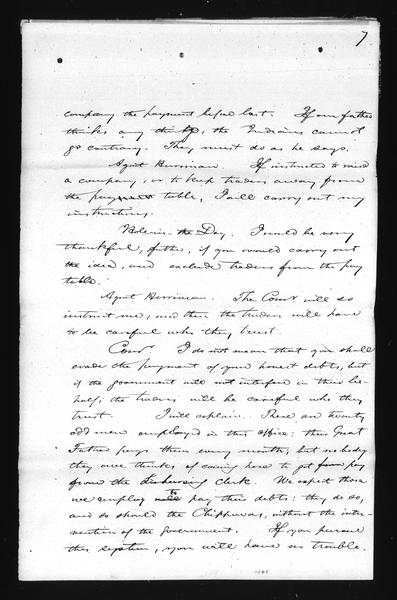 7
company the payment before last. If our father
thinks any thing, the Indians cannot
go contrary. They must do as he says.
Agent Herriman. If instructed to mind
a company, or to keep traders away from
the payment table, I will carry out my
instructions.
Hole-in-the-Day. I would be very
thankful, father, if you would carry out
the idea, and exclude traders from the pay
table.
Agent Herriman. The Comr will so
instruct me, and then the traders will have
to be careful who they trust.
Comr I do not mean that you shall
evade the payment of your honest debts, but
if the government will not interfere in their be-
half, the traders will be careful who they
trust. I will explain. There are twenty
odd men employed in this office: their Great
Father pays them every month, but nobody
they owe thinks of coming here to get pay
from the disbursing clerk. We expect those
we employ to pay their debts: they do so,
and so should the Chippewas, without the inter-
vention of the government. If you pursue
this system, you will have no trouble.